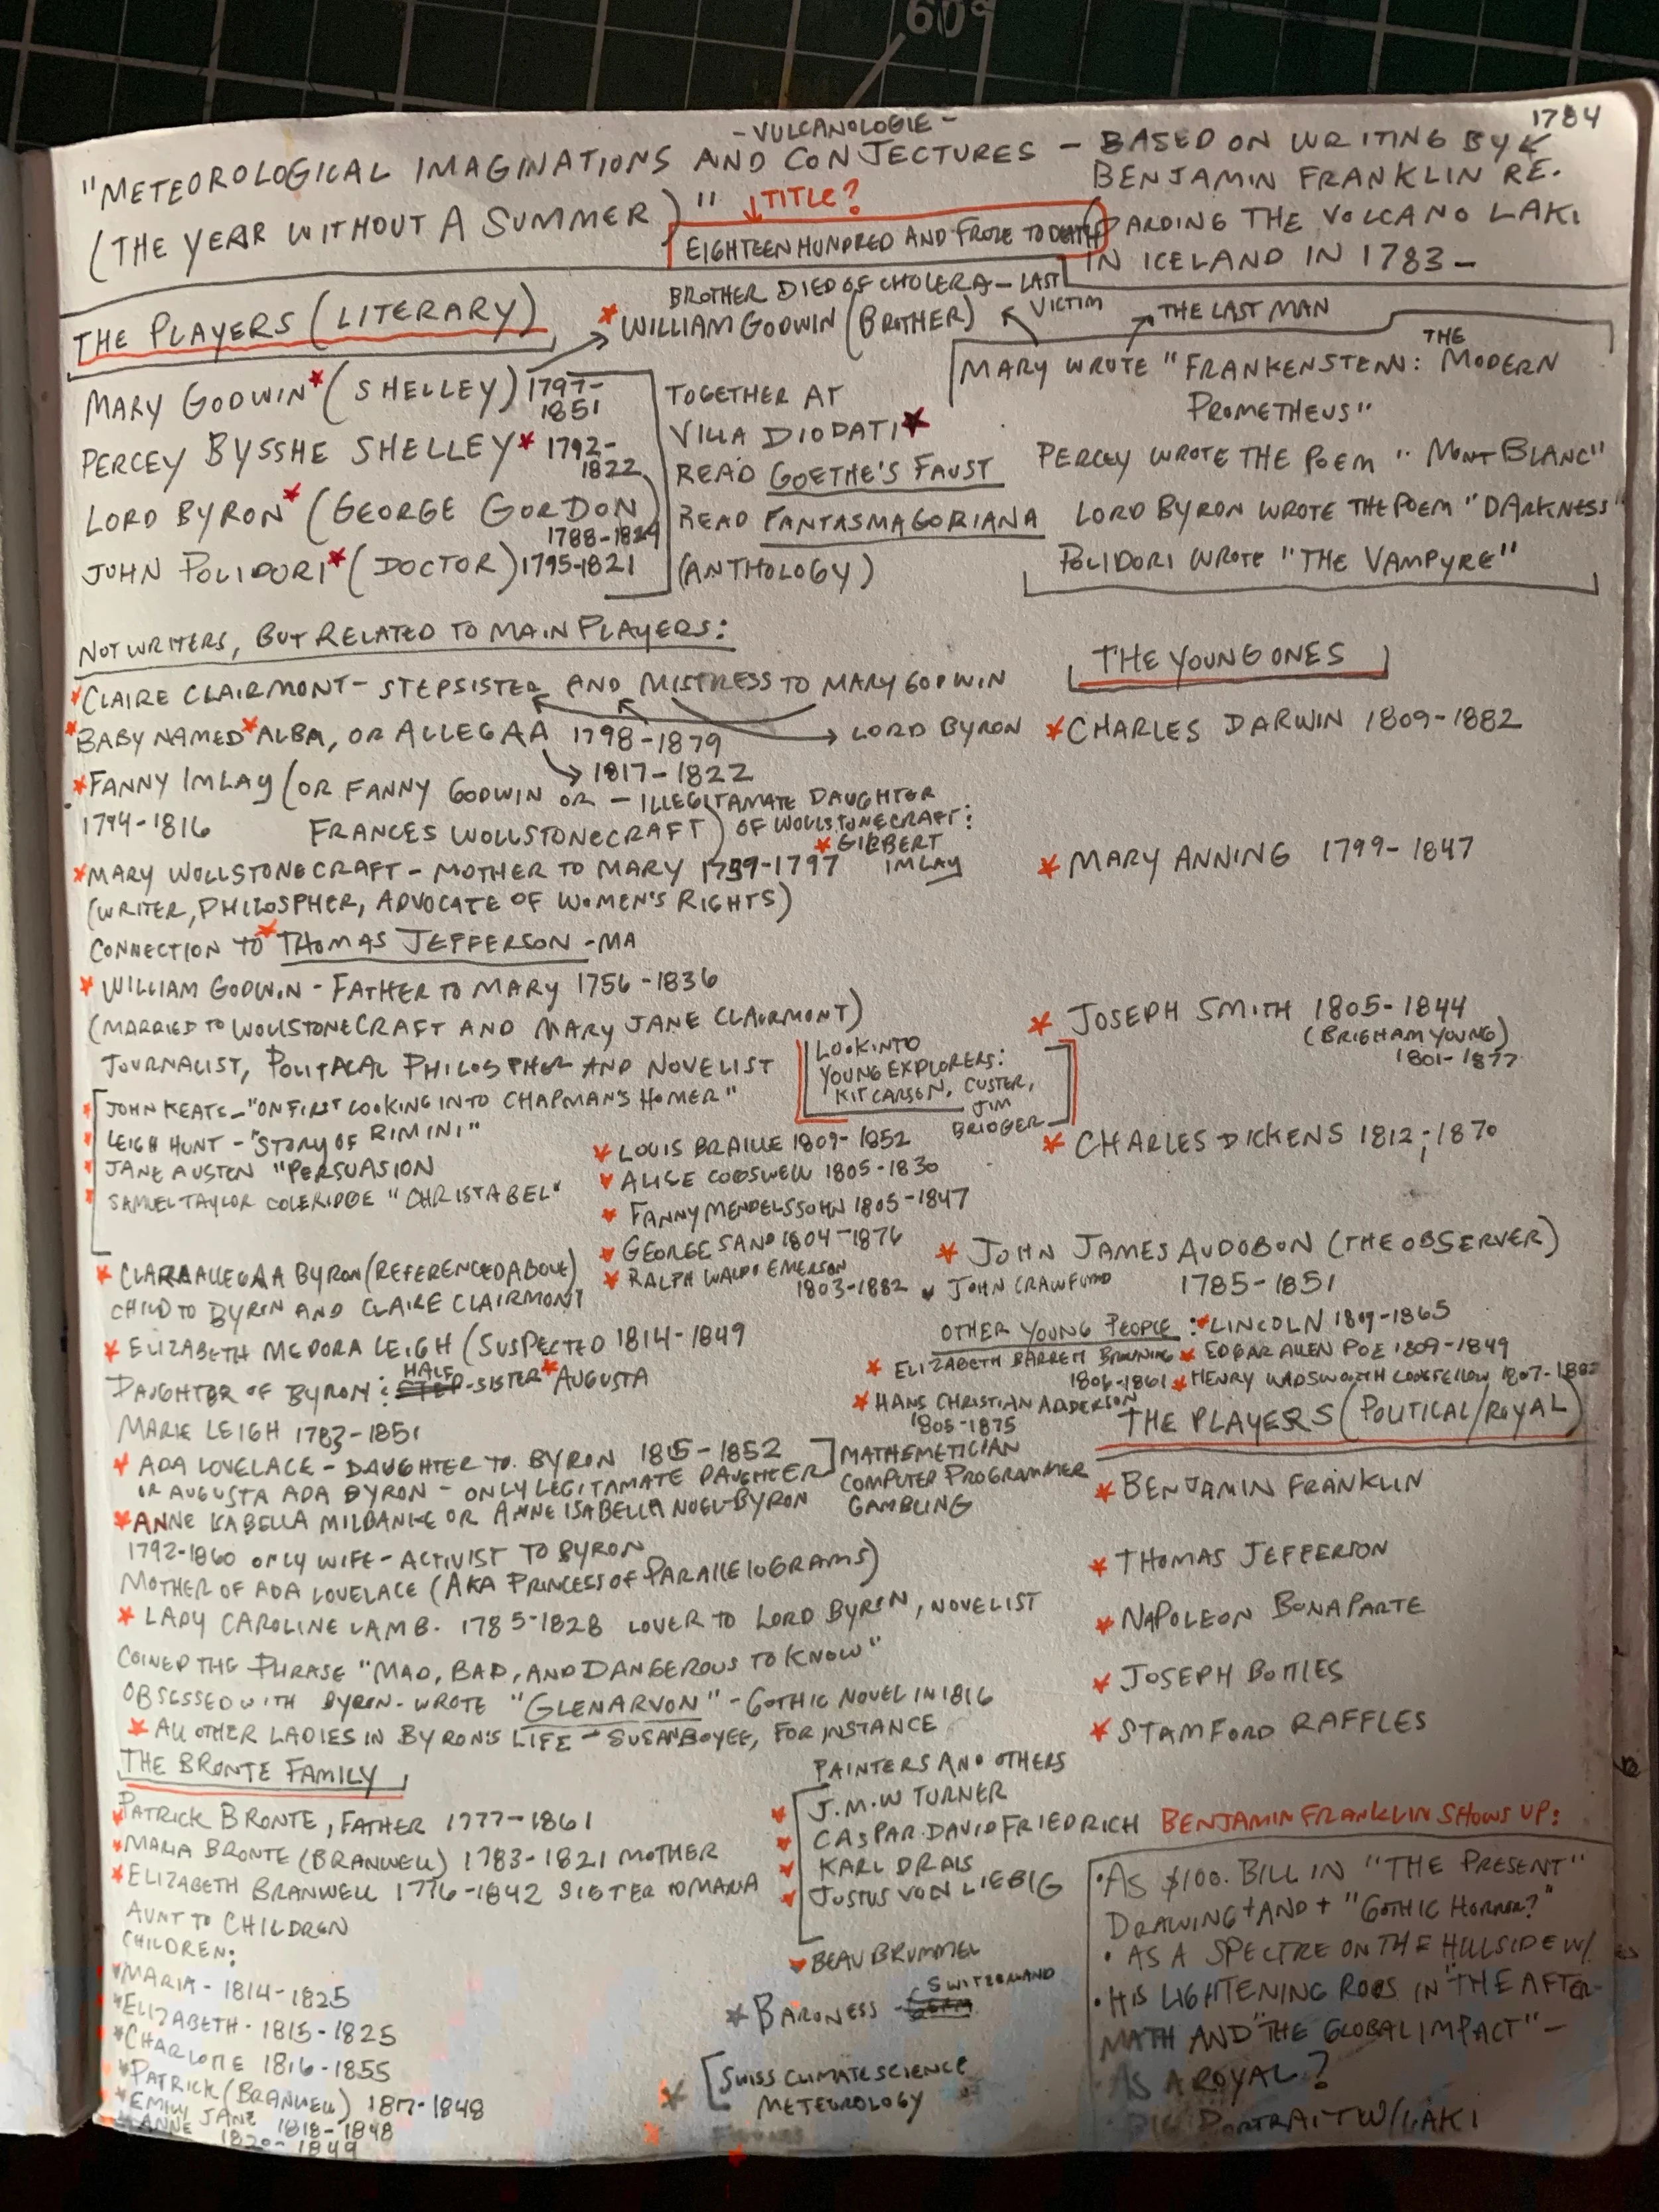 60°
- VULCANOLOGIE -
1784
"METEOROLOGICAL IMAGINATIONS AND CONJECTURES - BASED ON WRITING BY
BENJAMIN FRANKLIN RE-
(THE YEAR WITHOUT A SUMMER)" TITLE?
GARDING THE VOLCANO LAKI
EIGHTEEN HUNDRED AND FROZE TO DEATH
IN ICELAND IN 1783 -
BROTHER DIED OF CHOLERA - LAST
VICTIM
THE PLAYERS (LITERARY)
WILLIAM GODWIN (BROTHER)
THE LAST MAN
MARY GODWIN (SHELLEY) 1797-
1851
PERCEY BYSSHE SHELLEY 1792-
1822
LORD BYRON (GEORGE GORDON)
1788-1824
JOHN POLIDORI (DOCTOR) 1795-1821
TOGETHER AT
VILLA DIODATI
READ GOETHE'S FAUST
READ FANTASMAGORIANA
(ANTHOLOGY)
MARY WROTE "FRANKENSTEIN: THE MODERN
PROMETHEUS"
PERCEY WROTE THE POEM "MONT BLANC"
LORD BYRON WROTE THE POEM "DARKNESS"
POLIDORI WROTE "THE VAMPYRE"
NOT WRITERS, BUT RELATED TO MAIN PLAYERS:
CLAIRE CLAIRMONT - STEPSISTER AND MISTRESS TO MARY GODWIN
LORD BYRON
BABY NAMED ALBA, OR ALLEGAA 1798-1879
1817-1822
FANNY IMLAY (OR FANNY GODWIN OR - ILLEGITAMATE DAUGHTER
1794-1816 FRANCES WOLLSTONECRAFT) OF WOLLSTONECRAFT:
GILBERT
IMLAY
MARY WOLLSTONECRAFT - MOTHER TO MARY 1759-1797
(WRITER, PHILOSPHER, ADVOCATE OF WOMEN'S RIGHTS)
CONNECTION TO THOMAS JEFFERSON - MA
WILLIAM GODWIN - FATHER TO MARY 1756-1836
(MARRIED TO WOLLSTONECRAFT AND MARY JANE CLAIRMONT)
JOURNALIST, POLITACAL PHILOSPHER AND NOVELIST
JOHN KEATS - "ON FIRST LOOKING INTO CHAPMAN'S HOMER"
LEIGH HUNT - "STORY OF RIMINI"
JANE AUSTEN "PERSUASION
SAMUEL TAYLOR COLERIDGE "CHRISTABEL"
CLARA ALLEGAA BYRON (REFERENCED ABOVE)
CHILD TO BYRON AND CLAIRE CLAIRMONT
ELIZABETH MEDORA LEIGH (SUSPECTED 1814-1849
DAUGHTER OF BYRON: HALF STEP-SISTER AUGUSTA
MARIE LEIGH 1783-1851
ADA LOVELACE - DAUGHTER TO BYRON 1815-1852
OR AUGUSTA ADA BYRON - ONLY LEGITAMATE DAUGHTER
MATHEMETICIAN
COMPUTER PROGRAMMER
GAMBLING
ANNE ISABELLA MILBANKE OR ANNE ISABELLA NOEL-BYRON
1792-1860 ONLY WIFE - ACTIVIST TO BYRON
MOTHER OF ADA LOVELACE (AKA PRINCESS OF PARALLELOGRAMS)
LADY CAROLINE LAMB. 1785-1828 LOVER TO LORD BYRON, NOVELIST
COINED THE PHRASE "MAD, BAD, AND DANGEROUS TO KNOW"
OBSESSED WITH BYRON - WROTE "GLENARVON" - GOTHIC NOVEL IN 1816
ALL OTHER LADIES IN BYRON'S LIFE - SUSAN BOYCE, FOR INSTANCE
THE BRONTE FAMILY
PATRICK BRONTE, FATHER 1777-1861
MARIA BRONTE (BRANWELL) 1783-1821 MOTHER
ELIZABETH BRANWELL 1776-1842 SISTER TO MARIA
AUNT TO CHILDREN
CHILDREN:
MARIA - 1814-1825
ELIZABETH - 1815-1825
CHARLOTTE 1816-1855
PATRICK (BRANWELL) 1817-1848
EMILY JANE 1818-1848
ANNE 1820-1849
THE YOUNG ONES
CHARLES DARWIN 1809-1882
MARY ANNING 1799-1847
JOSEPH SMITH 1805-1844
(BRIGHAM YOUNG)
1801-1877
LOOK INTO
YOUNG EXPLORERS:
KIT CARSON, CUSTER,
JIM
BRIDGER
CHARLES DICKENS 1812-1870
LOUIS BRAILLE 1809-1852
ALICE COGSWELL 1805-1830
FANNY MENDELSSOHN 1805-1847
GEORGE SAND 1804-1876
RALPH WALDO EMERSON
1803-1882
JOHN JAMES AUDOBON (THE OBSERVER)
1785-1851
JOHN CRAWFURD
OTHER YOUNG PEOPLE: LINCOLN 1809-1865
ELIZABETH BARRETT BROWNING EDGAR ALLEN POE 1809-1849
1806-1861 HENRY WADSWORTH LONGFELLOW 1807-1882
HANS CHRISTIAN ANDERSON
1805-1875
THE PLAYERS (POLITICAL/ROYAL)
BENJAMIN FRANKLIN
THOMAS JEFFERSON
NAPOLEON BONAPARTE
JOSEPH BOTTLES
STAMFORD RAFFLES
PAINTERS AND OTHERS
J.M.W TURNER
CASPAR DAVID FRIEDRICH
KARL DRAIS
JUSTUS VON LIEBIG
BEAU BRUMMEL
BARONESS - SWITZERLAND
SWISS CLIMATE SCIENCE
METEOROLOGY
BENJAMIN FRANKLIN SHOWS UP:
• AS $100. BILL IN "THE PRESENT"
DRAWING + AND + "GOTHIC HORROR?"
• AS A SPECTRE ON THE HILLSIDE W/
• HIS LIGHTENING RODS IN "THE AFTER-
MATH AND "THE GLOBAL IMPACT" -
AS A ROYAL?
BIG PORTRAIT W/LAKI